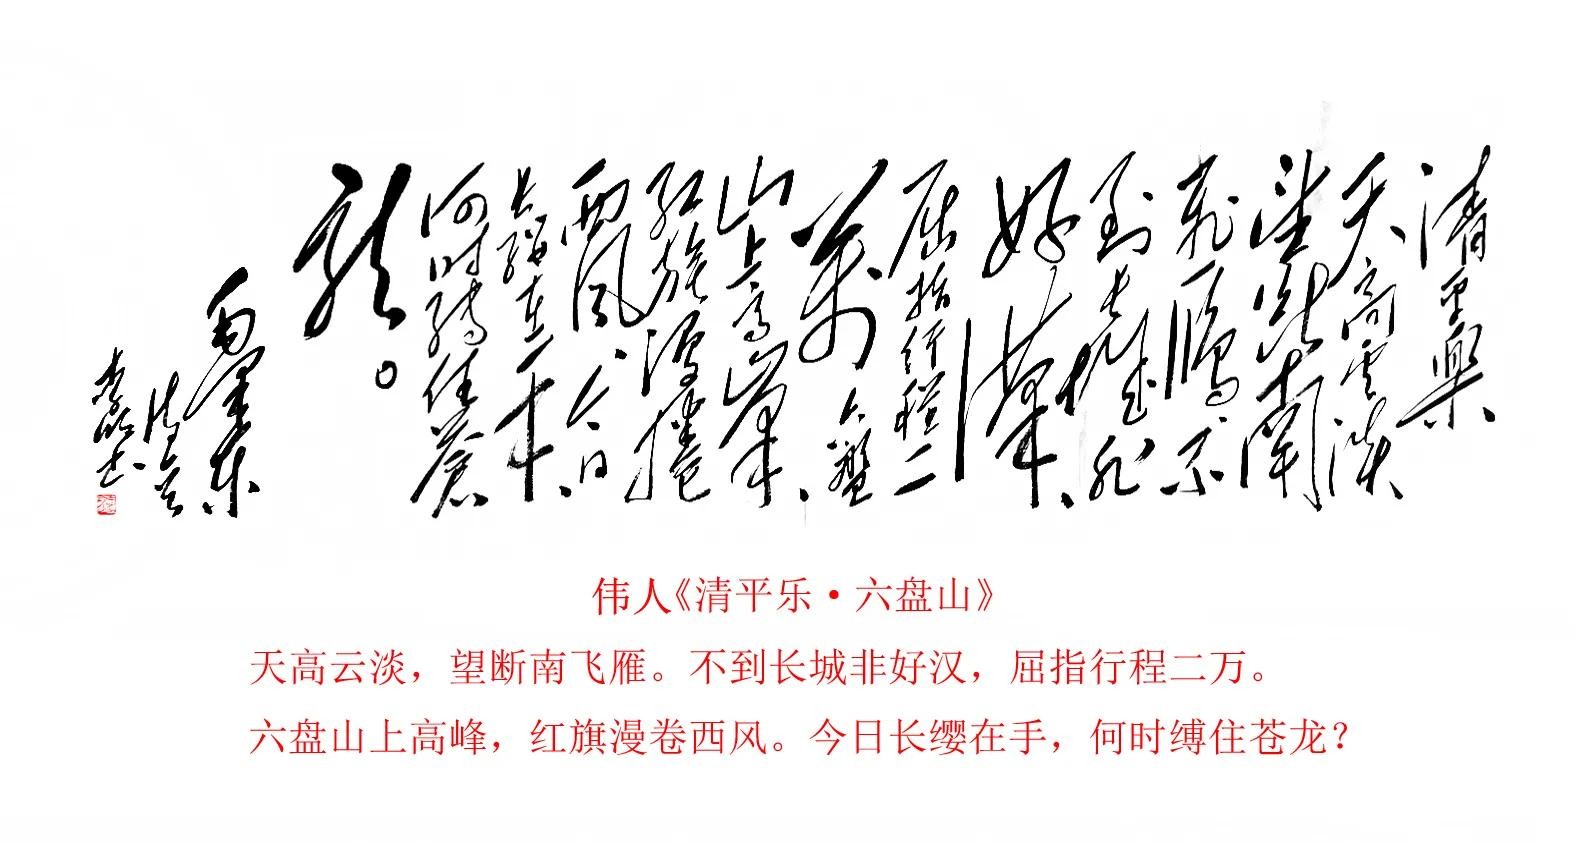 清平樂
天高雲淡
望断南
飛鴈不
到長城非
好漢
屈指行程二
萬六盤
山上高峯
紅旗漫捲
西風今日
長纓在手
何时縛住蒼
龍。
毛澤東
伟人《清平乐·六盘山》
天高云淡，望断南飞雁。不到长城非好汉，屈指行程二万。
六盘山上高峰，红旗漫卷西风。今日长缨在手，何时缚住苍龙？